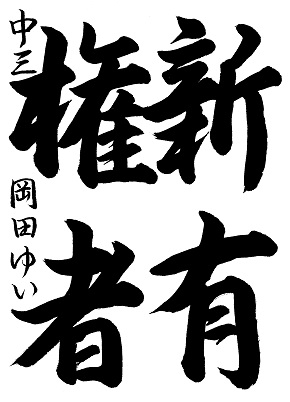 新有
権者
中三 岡田ゆい